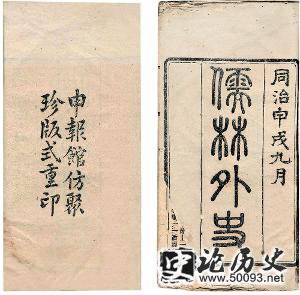 同治甲戌九月
儒林外史
申報館仿聚
珍版式重印
论历史
www.50093.net